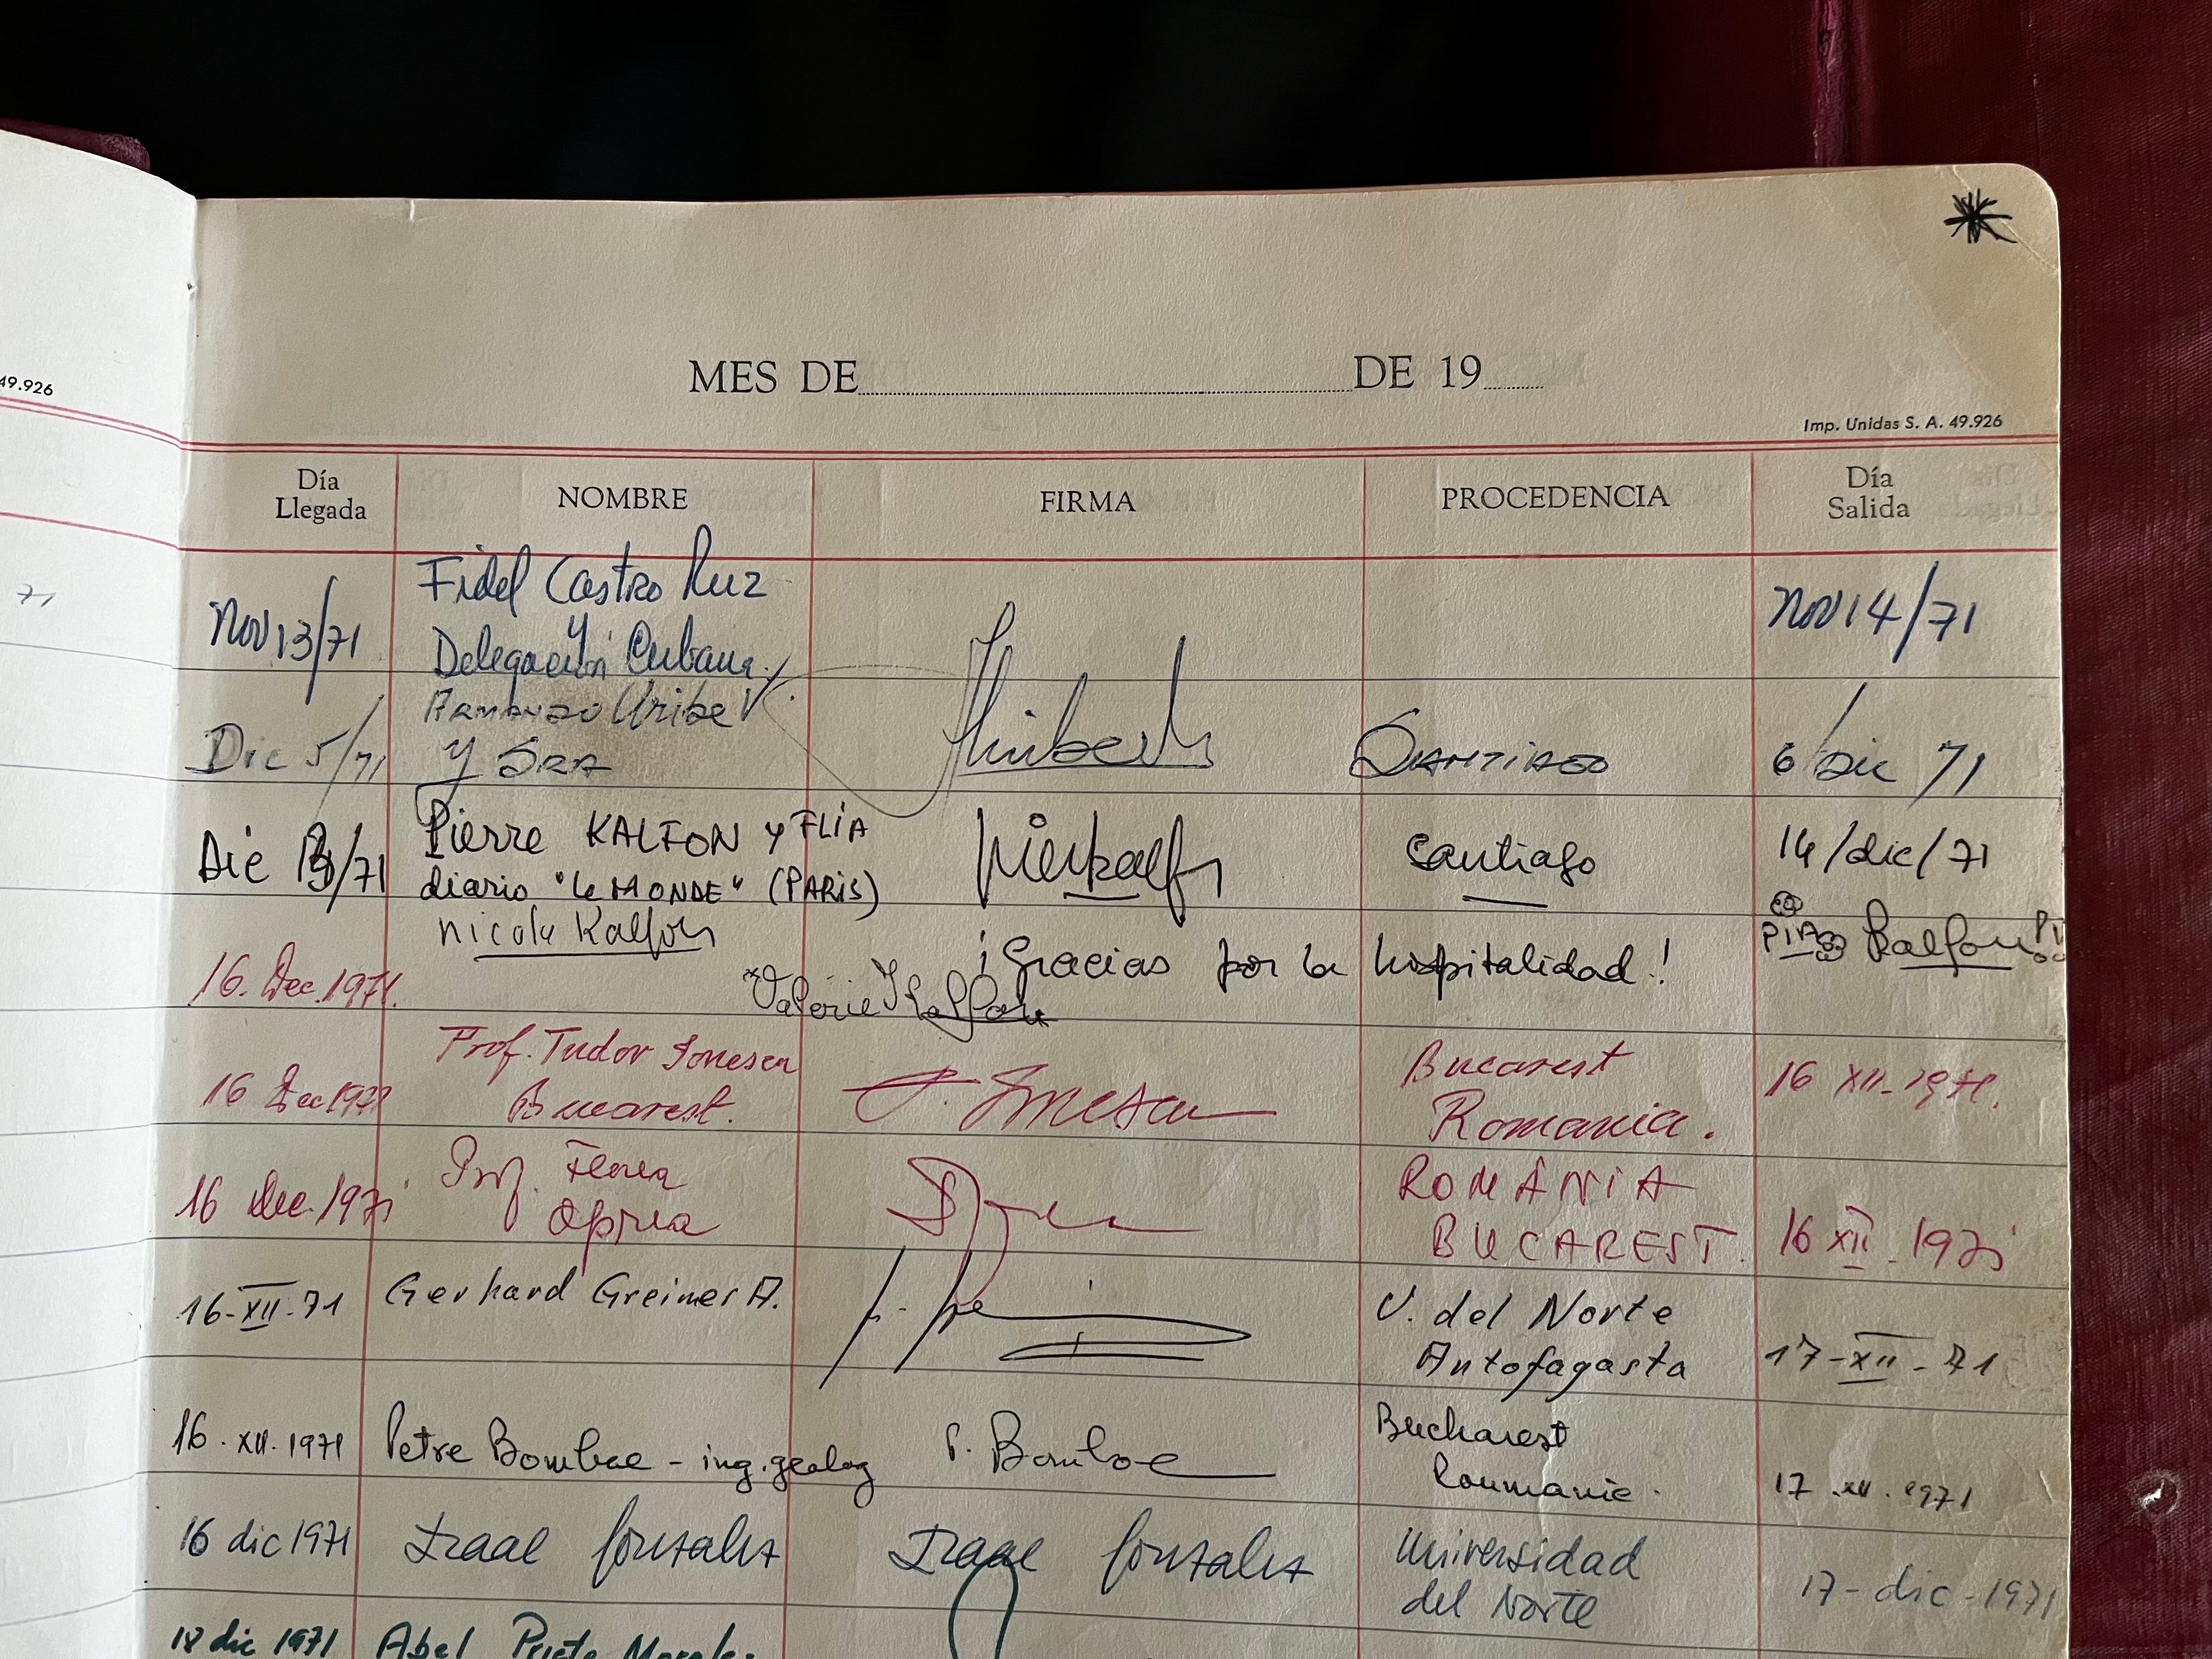 49.926
71
MES DE DE 19
Imp. Unidas S. A. 49.926
Día Llegada NOMBRE FIRMA PROCEDENCIA Día Salida
Nov 13/71 Fidel Castro Ruz Nov 14/71
y
Delegación Cubana
Armando Uribe
Dic 5/71 y SRA SANTIAGO 6/Dic 71
Pierre KALFON y FLIA
Dic 13/71 Santiago 14/dic/71
diario "Le MONDE" (PARIS)
Nicole Kalfon
PIA Kalfon
¡Gracias por la hospitalidad!
16. Dec. 1971. Valérie Kalfon
Prof. Tudor Ionescu Bucarest 16 XII-1971.
16 Dec 1971 Bucarest. T. Ionescu Romania.
Prof. Florea ROMÂNIA
16 Dec. 1971 Oprea BUCAREST. 16 XII. 1971
16-XII-71 Gerhard Greiner A. U. del Norte
Antofagasta 17-XII-71
16.XII.1971 Petre Bomboe - ing. geolog P. Bomboe Bucharest
Roumanie. 17.XII.1971
16 dic 1971 Israel González Israel González Universidad
del Norte 17-dic-1971
18 dic 1971 Abel Prieto Morales